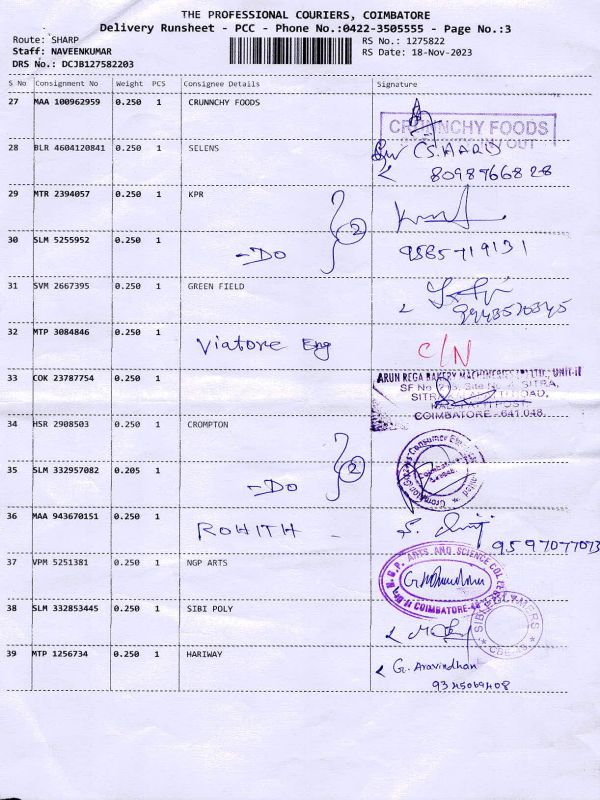 THE PROFESSIONAL COURIERS, COIMBATORE
Delivery Runsheet - PCC - Phone No.:0422-3505555 - Page No.:3
Route: SHARP RS No.: 1275822
Staff: NAVEENKUMAR RS Date: 18-Nov-2023
DRS No.: DCJB127582203
S No Consignment No Weight PCS Consignee Details Signature
27 MAA 100962959 0.250 1 CRUNNCHY FOODS
CRUNNCHY FOODS
28 BLR 4604120841 0.250 1 SELENS
8098766828
29 MTR 2394057 0.250 1 KPR
2
30 SLM 5255952 0.250 1 -DO 9585719131
31 SVM 2667395 0.250 1 GREEN FIELD
9443570345
32 MTP 3084846 0.250 1 Viatore Eng C/N
33 COK 23787754 0.250 1
ARUN REGA BAKERY MACHINERIES (P) LTD., UNIT-II
COIMBATORE - 641 048.
34 HSR 2908503 0.250 1 CROMPTON
2
35 SLM 332957082 0.205 1 -DO
36 MAA 943670151 0.250 1 ROHITH -
9597077073
37 VPM 5251381 0.250 1 NGP ARTS
N.G.P. ARTS AND SCIENCE COLLEGE
COIMBATORE-48
38 SLM 332853445 0.250 1 SIBI POLY
SIBI POLYMERS
39 MTP 1256734 0.250 1 HARIWAY G. Aravindhan
9345069408